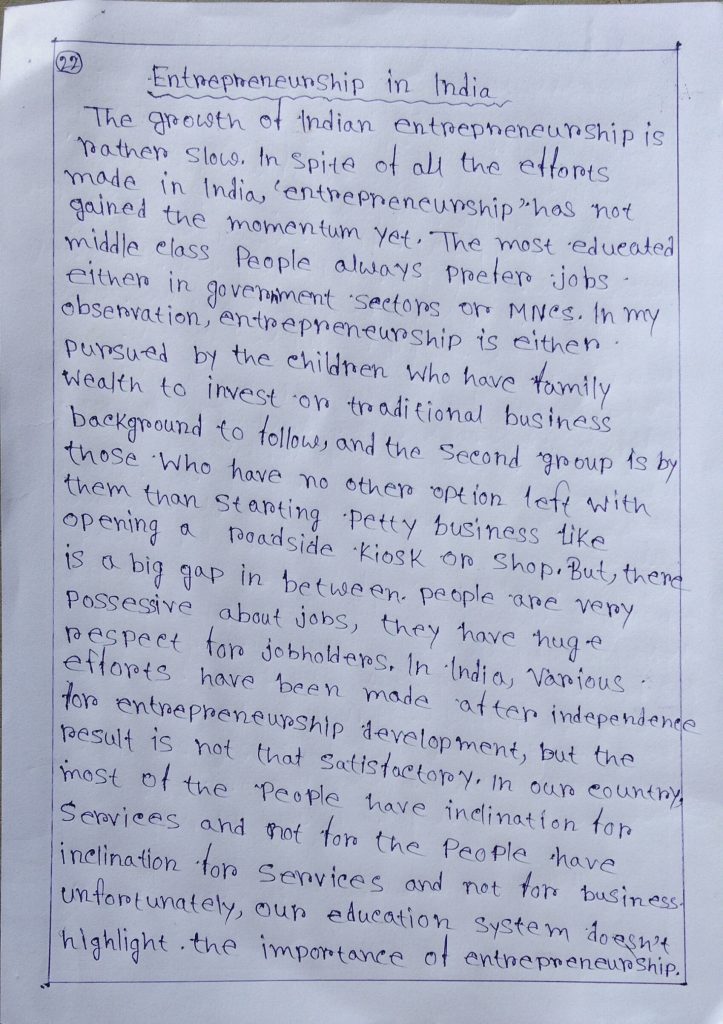 22
Entrepreneurship in India
The growth of Indian entrepreneurship is
rather slow. In spite of all the efforts
made in India, "entrepreneurship" has not
gained the momentum yet. The most educated
middle class People always prefer jobs
either in government sectors or MNCs. In my
observation, entrepreneurship is either
pursued by the children who have family
wealth to invest or traditional business
background to follow, and the second group is by
those who have no other option left with
them than starting petty business like
opening a roadside kiosk or shop. But, there
is a big gap in between. people are very
possessive about jobs, they have huge
respect for jobholders. In India, various
efforts have been made after independence
for entrepreneurship development, but the
result is not that satisfactory. In our country,
most of the people have inclination for
services and not for the people have
inclination for services and not for business.
unfortunately, our education system doesn't
highlight the importance of entrepreneurship.